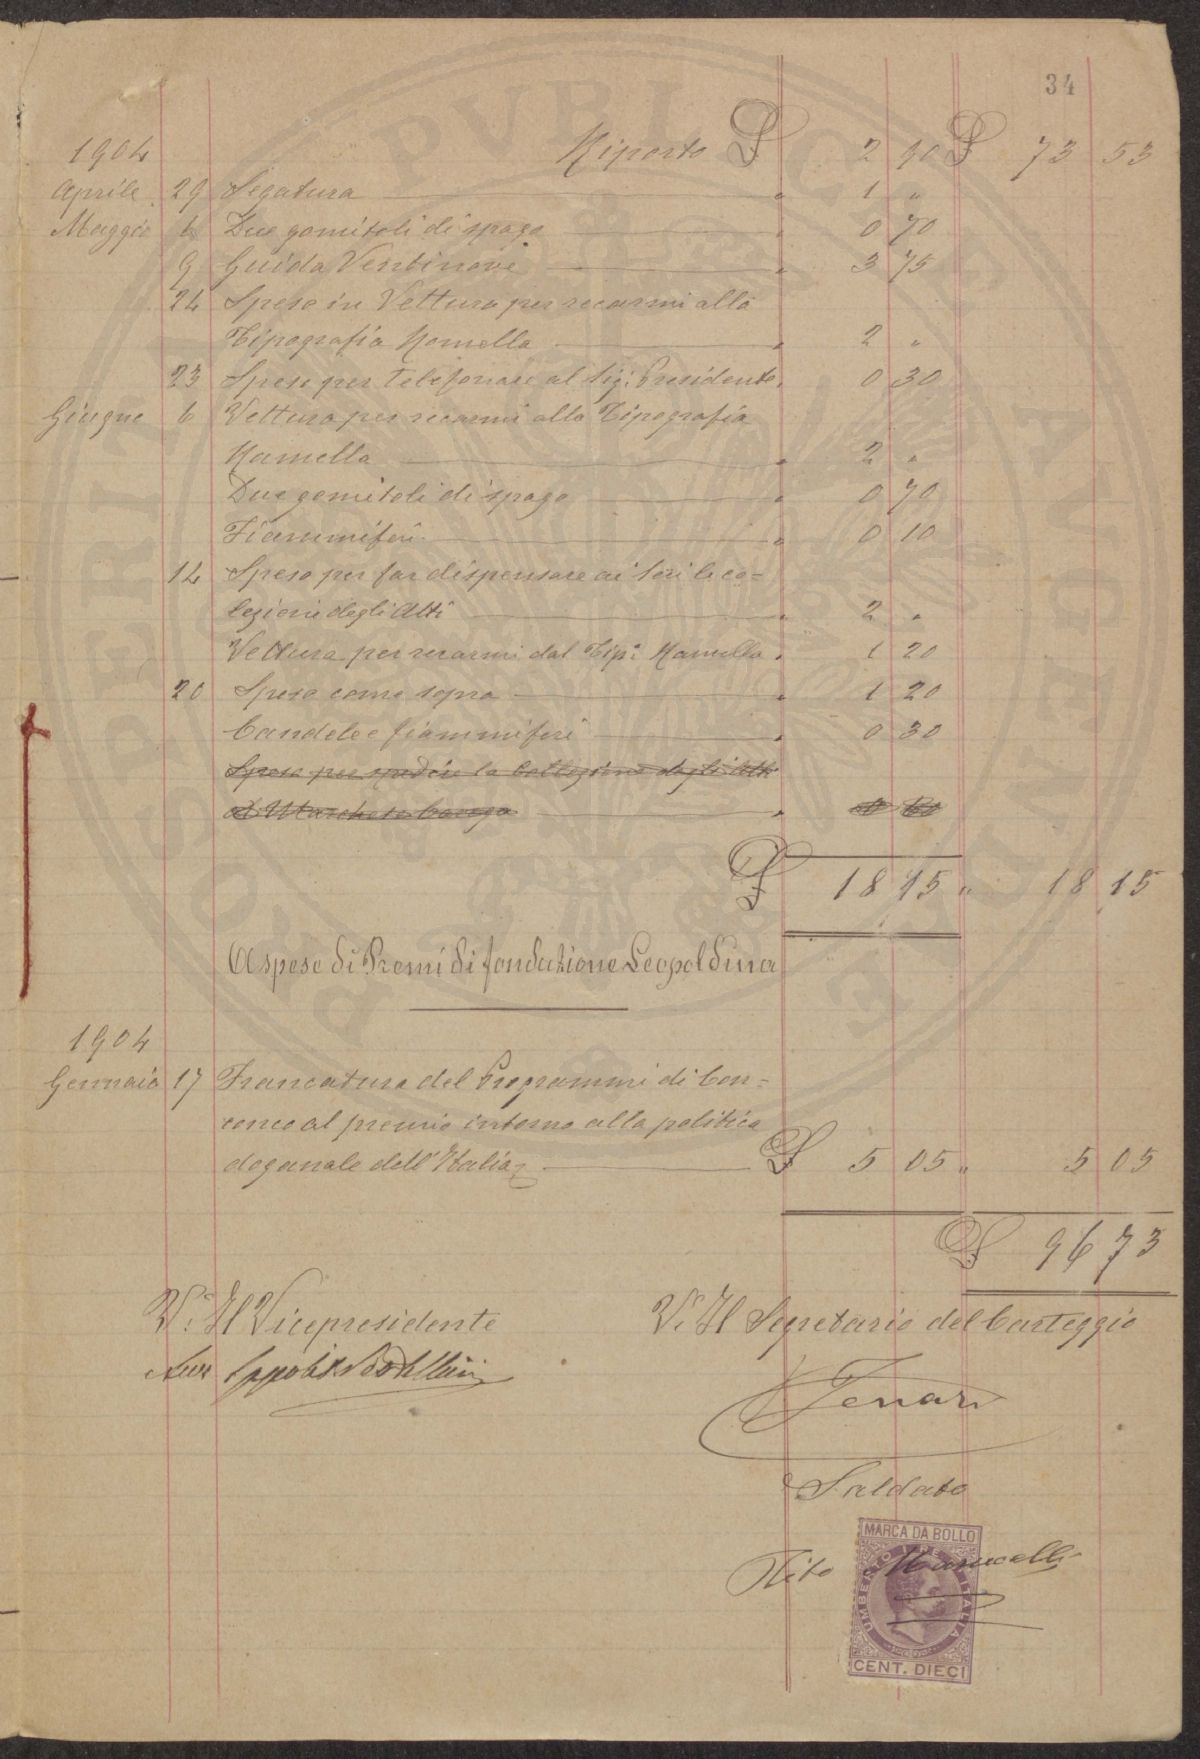 34
1904 Riporto £ 2 90 £ 73 53
Aprile 29 Segatura " 1 "
Maggio 6 Due gomitoli di spago " 0 70
9 Guida Ventinove " 3 75
24 Spese in Vettura per recarmi alla
Tipografia Ramella " 2 "
23 Spese per telefonare al Sig: Presidente " 0 30
Giugno 6 Vettura per recarmi alla Tipografia
Ramella " 2 "
Due gomitoli di spago " 0 70
Fiammiferi " 0 10
14 Spese per far dispensare ai Soci la co=
lezione degli Atti " 2 "
Vettura per recarmi dal Tip: Ramella " 1 20
20 Spese come sopra " 1 20
Candele e fiammiferi " 0 30
Spese per spedire la Collezione degli Atti
al Marchese
£ 18 15 " 18 15
A spese di Premi di fondazione Leopoldina
1904
Gennaio 17 Francatura del Programmi di Con=
corso al premio intorno alla politica
doganale dell'Italia £ 5 05 " 5 05
£ 96 73
V: Il Vicepresidente V. Il Segretario del Carteggio
Saldato
MARCA DA BOLLO
Tito
UMBERTO I RE D'ITALIA
CENT. DIECI